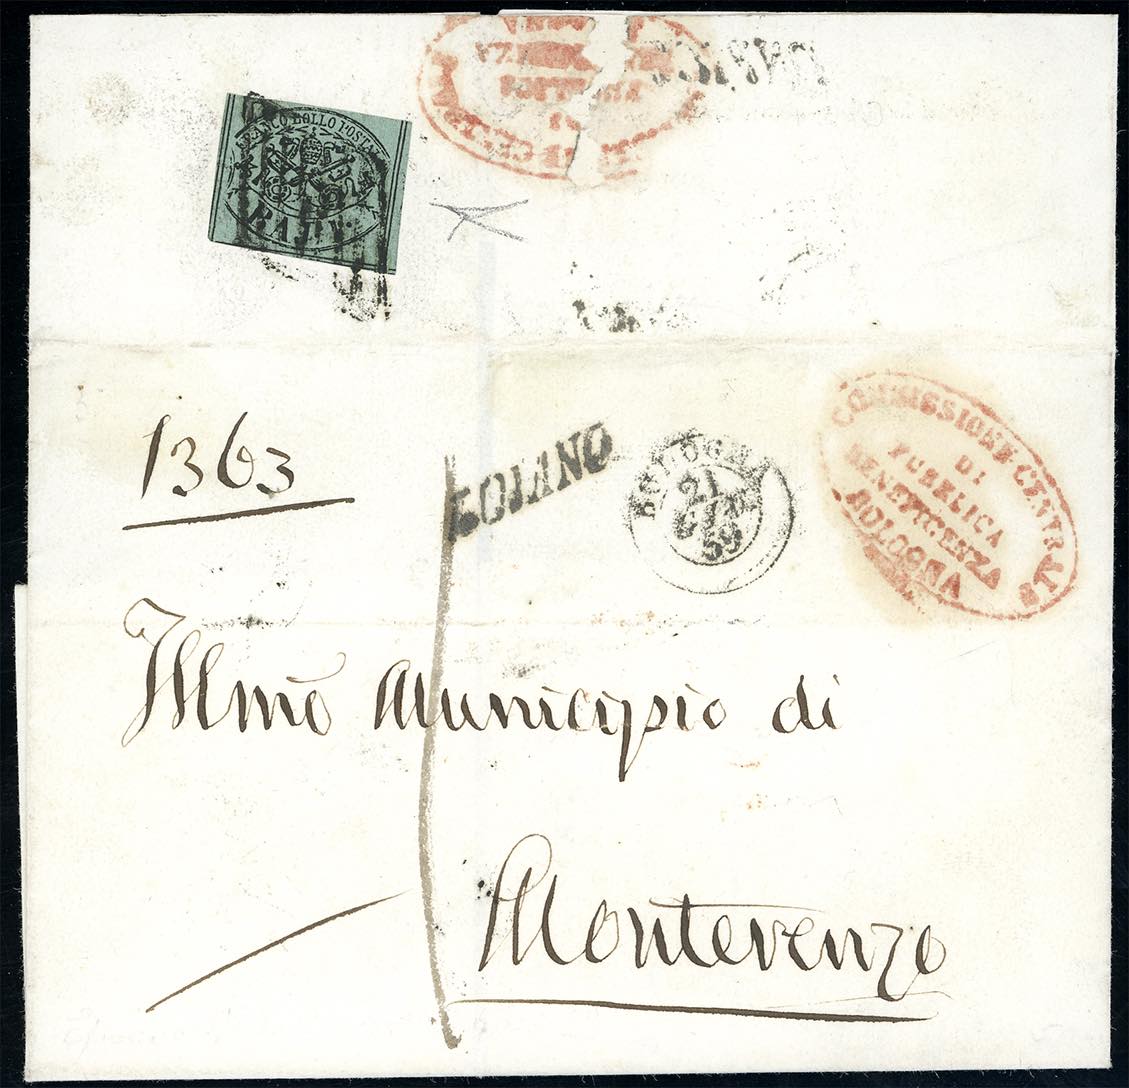 FRANCO BOLLO POSTALE
BAJ. 1.
1363
LOIANO
BOLOGNA
21
GIU
59
COMMISSIONE CENTRALE
DI
PUBBLICA
BENEFICENZA
BOLOGNA
Illmo Municipio di
Montevenzo